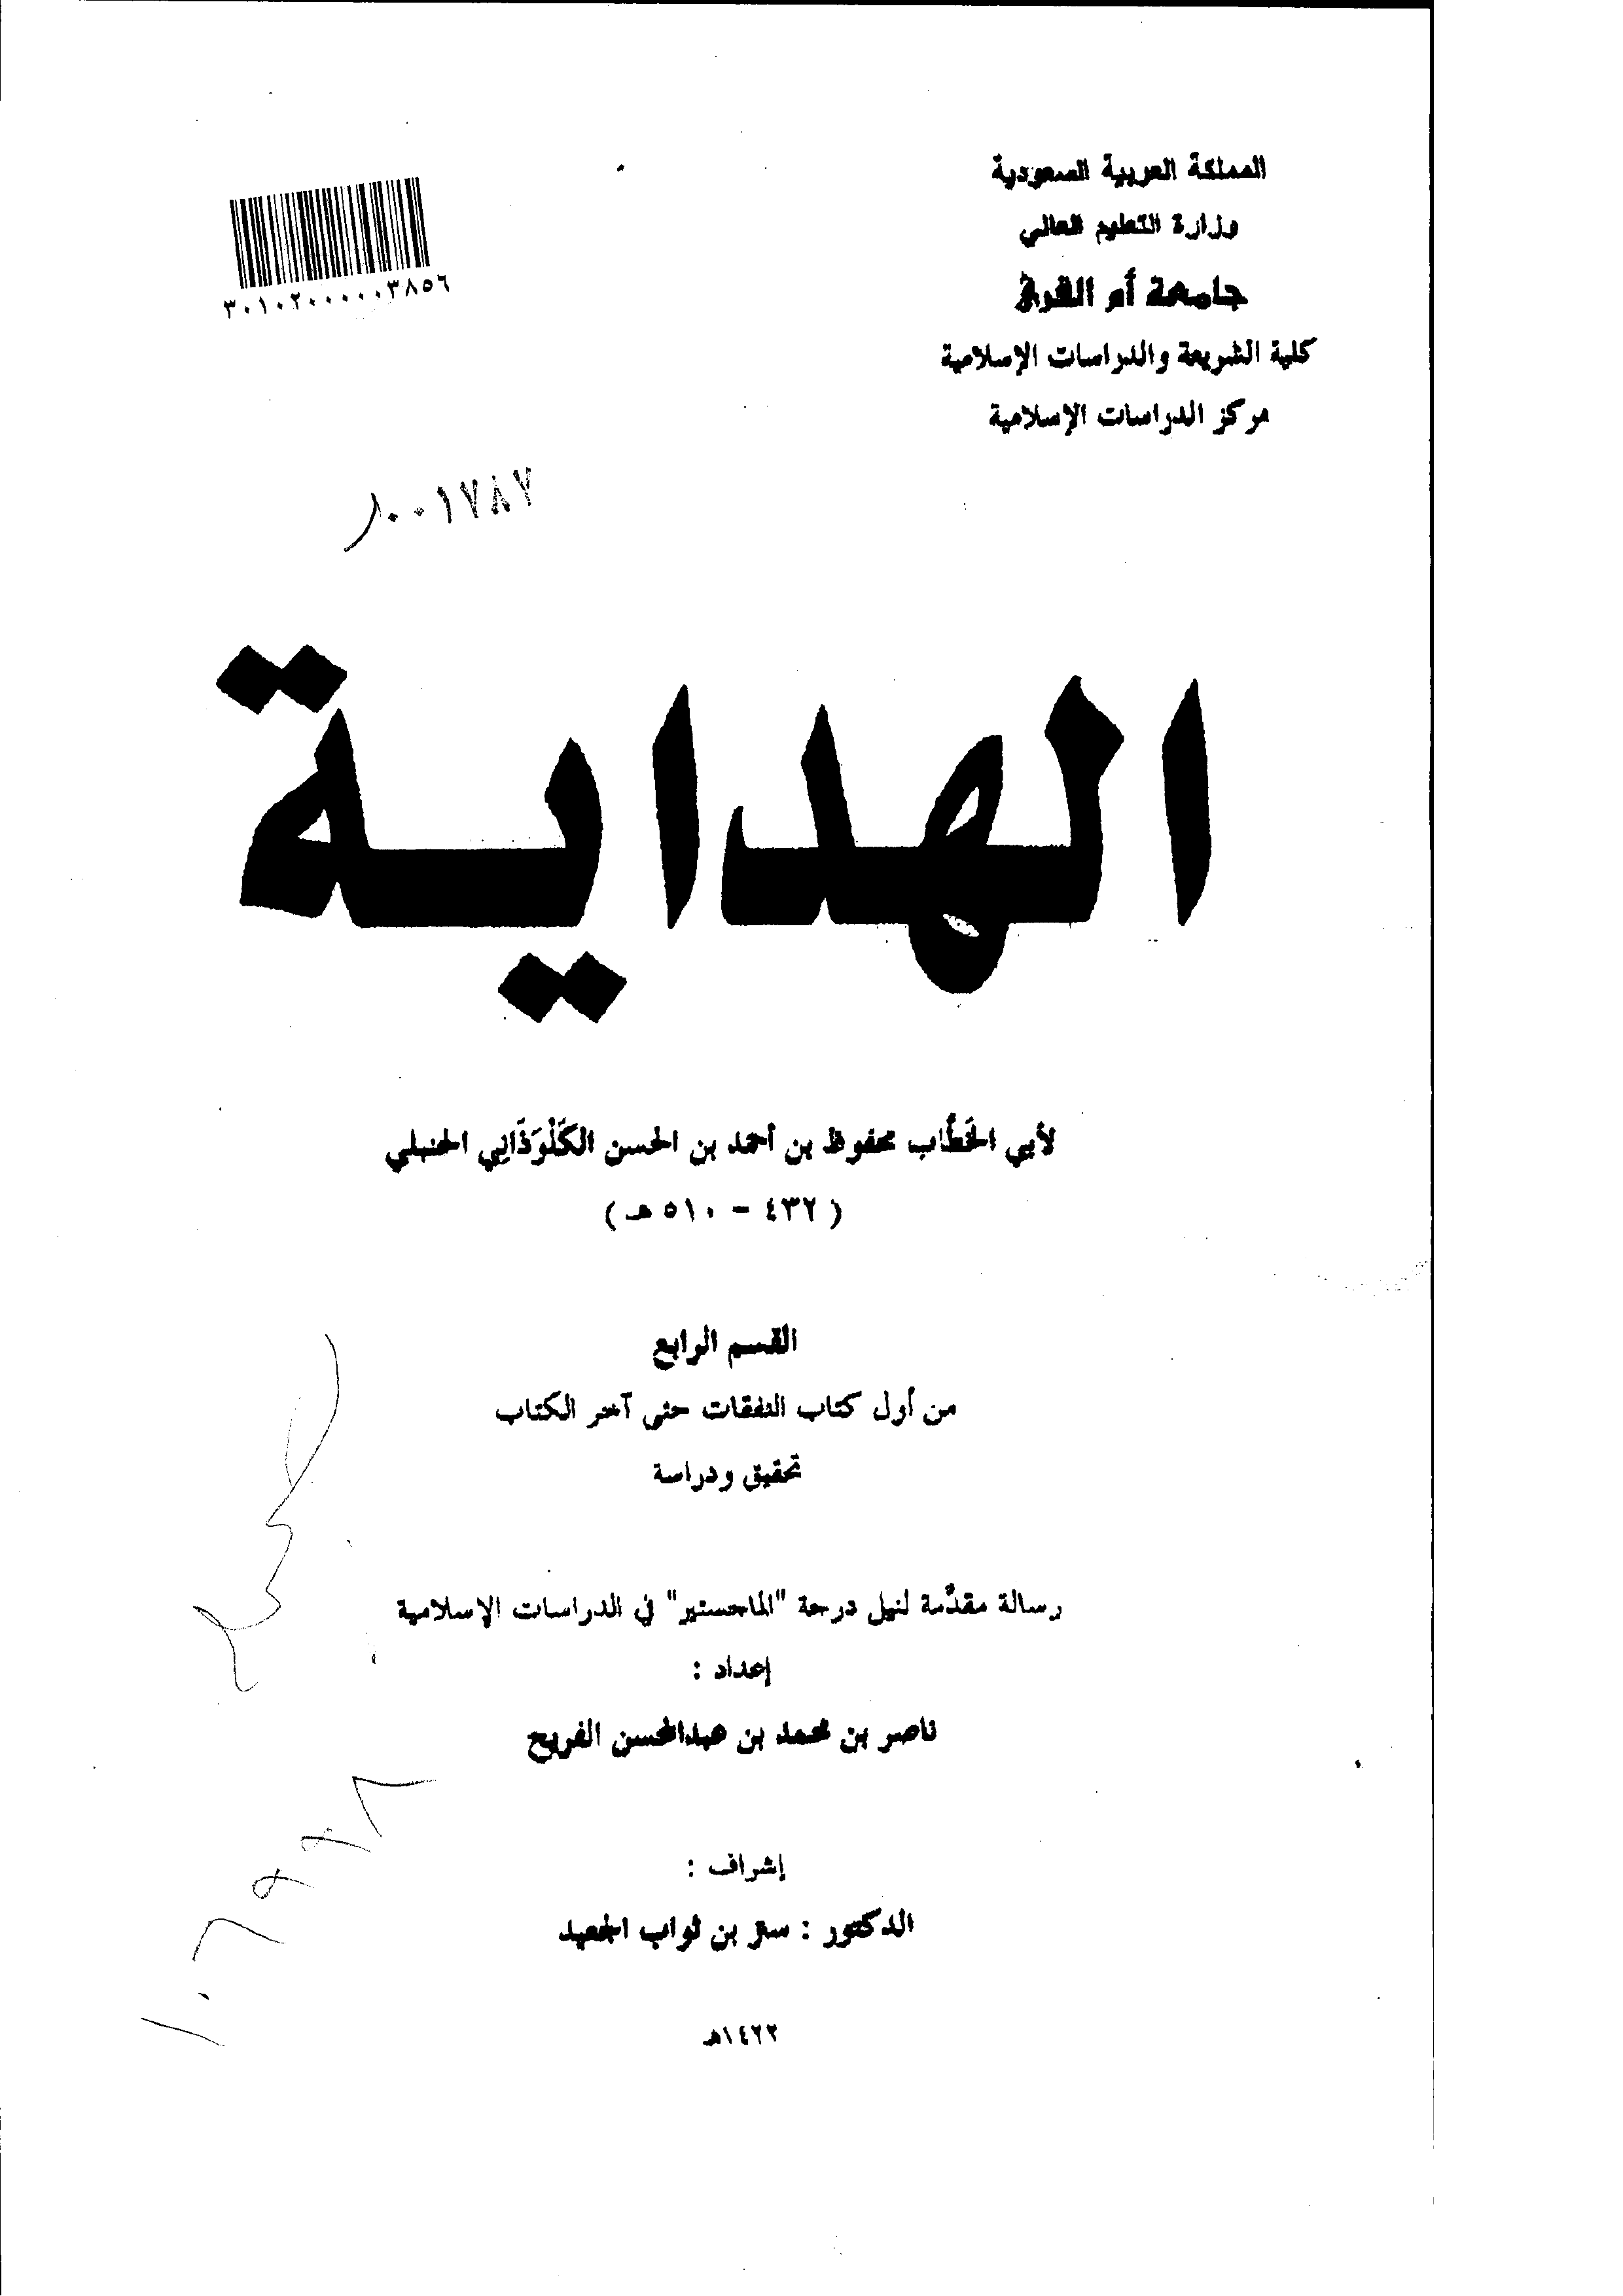 المملكة العربية السعودية
وزارة التعليم العالي
جامعة أم القرى
كلية الشريعة والدراسات الإسلامية
مركز الدراسات الإسلامية
٣٠١٠٢٠٠٠٠٠٣٨٥٦
٠٠١٧٨٧
الهداية
لأبي الخَطَّاب محفوظ بن أحمد بن الحسن الكَلْوَذَاني الحنبلي
( ٤٣٢ - ٥١٠ هـ )
القسم الرابع
من أول كتاب النفقات حتى آخر الكتاب
تحقيق ودراسة
رسالة مقدَّمة لنيل درجة "الماجستير" في الدراسات الإسلامية
إعداد :
ناصر بن محمد بن عبدالمحسن الفريح
إشراف :
الدكتور : ستر بن ثواب الجعيد
١٤٢٢هـ